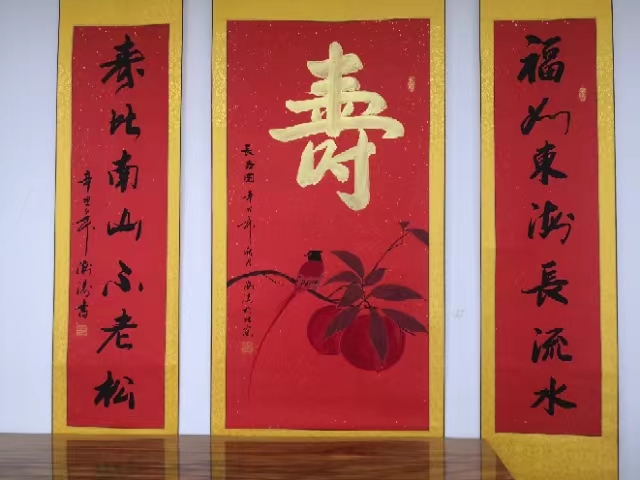 福如東海長流水
壽
長寿圖辛丑年秋月
寿比南山不老松
辛丑年
書